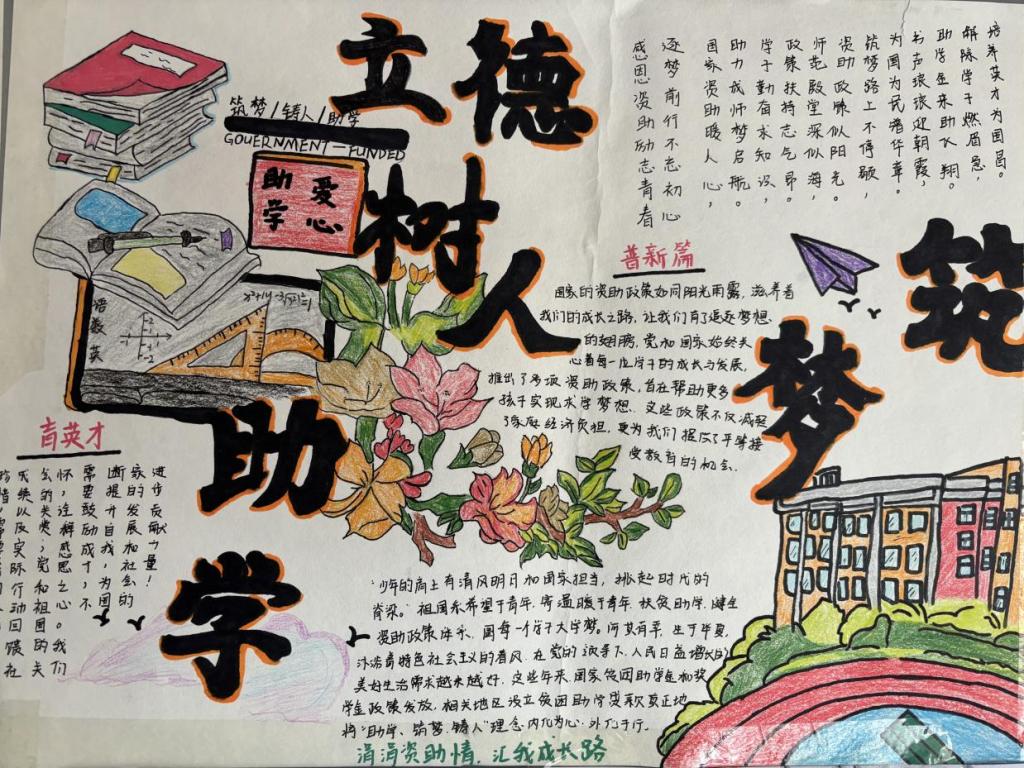 立德
树
人
筑
梦
助
学
筑梦/铸人/助学
GOVERNMENT-FUNDED
助 爱
学 心
语
数
英
感恩资助励志青春
逐梦前行不忘初心
国家资助暖人心,
助力成师梦启航。
学子勤奋求知识,
政策扶持志气昂。
师范殿堂深似海,
资助政策似阳光。
筑梦路上不停顿,
为国为民谱华章。
书声琅琅迎朝霞,
助学金来助飞翔。
解除学子燃眉急,
培养英才为国昌。
普新篇
国家的资助政策如同阳光雨露,滋养着
我们的成长之路,让我们有了追逐梦想
的翅膀,党和国家始终关
心着每一位学子的成长与发展,
推出了多项资助政策,旨在帮助更多
孩子实现求学梦想。这些政策不仅减轻
了家庭经济负担,更为我们提供了平等接
受教育的机会。
育英才
需要鼓励成才,不
断提升自我,为国
家的发展和社会的
进步贡献力量!
"少年的肩上有清风明月和国家担当,挑起时代的
脊梁。"祖国东希望于青年,寄温暖于青年,扶贫助学,
资助政策
生于华夏,
沐浴着特色社会主义的春风,在党的领导下,人民日益增长的
美好生活需求越来越好,这些年来,国家
学金政策发放,相关地区设立贫困助学贷款真正地
将"助学、筑梦、铸人"理念内化为心,外化于行。
涓涓资助情,汇我成长路